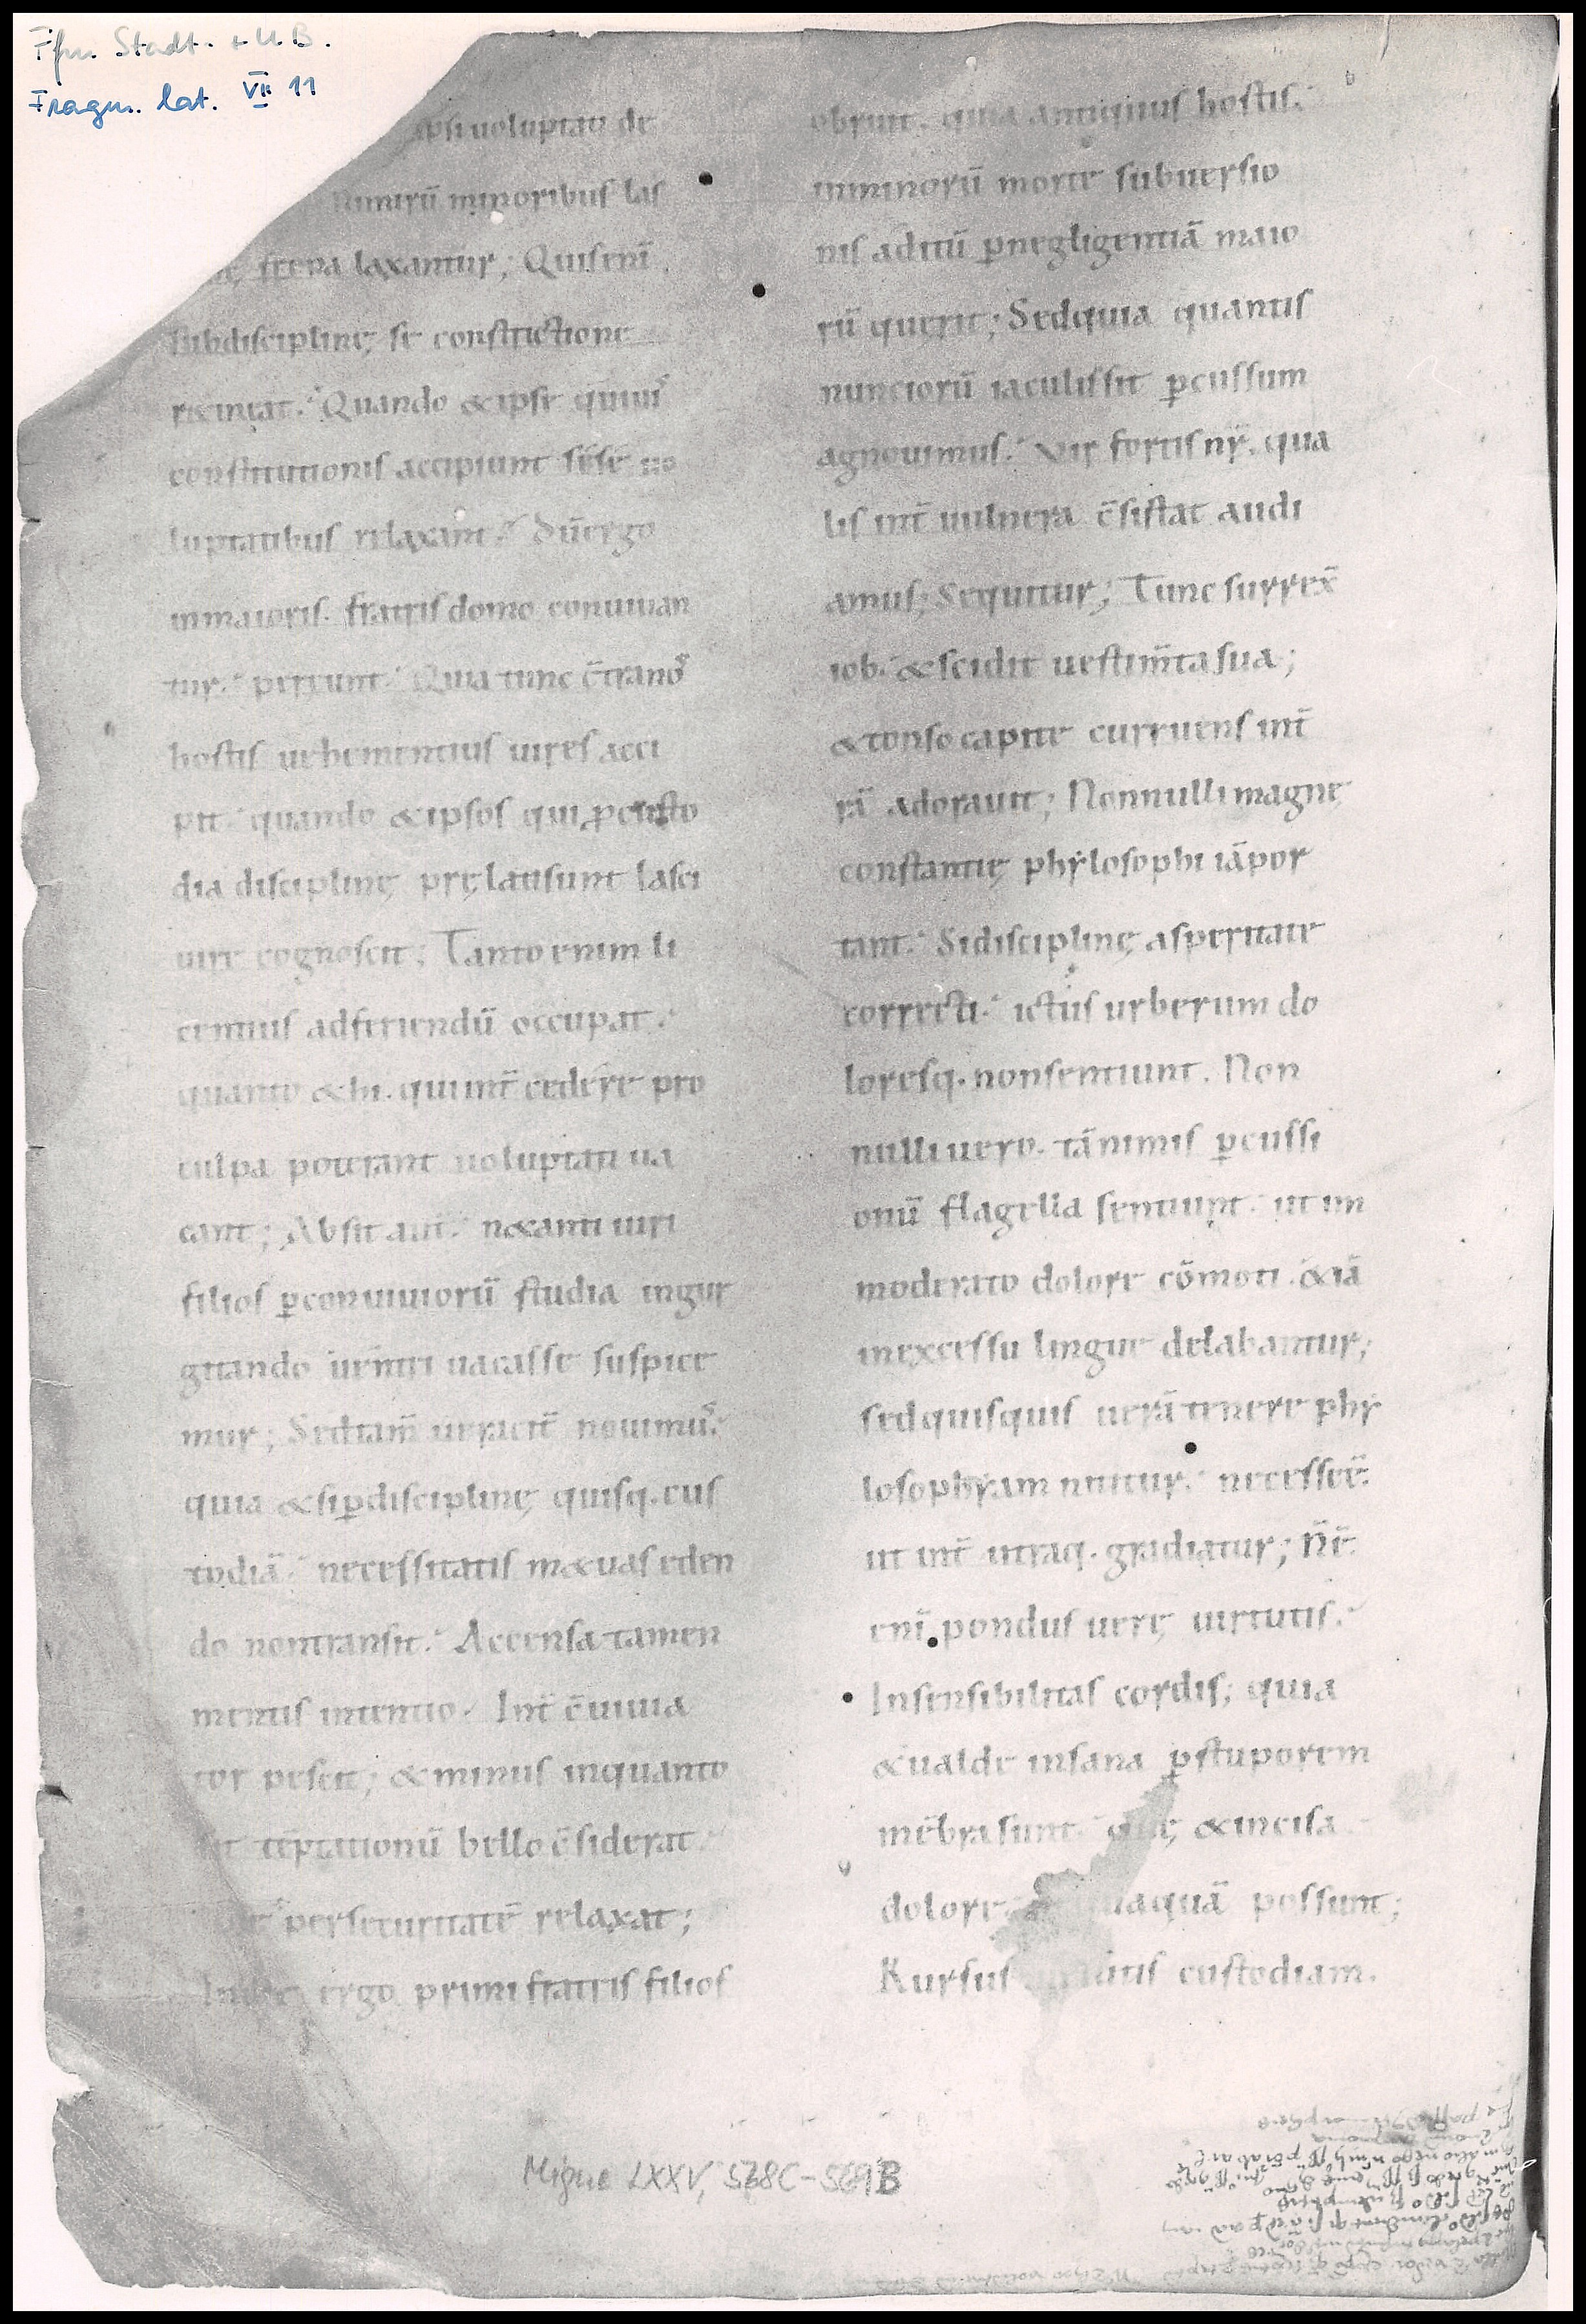 Ffm. Stadt. + U.B.
Fragm. lat. VII 11
ipsi uoluptati de
Nimirū minoribus las
frena laxantur; Quis enī
subdisciplinę se constrictione
retineat. Quando & ipsi qui iuꝛ̄
constitutionis accipiunt sese uo
luptatibus relaxant. Dū ergo
inmaioris. fratris domo conuiuan
tur. pereunt. Quia tunc c̄tra nos
hostis uehementius uires acci
pit. quando & ipsos qui ꝓ custo
dia disciplinę pręlati sunt lasci
uire cognoscit; Tanto enim li
centius ad feriendū occupat.
quanto & hi. qui int̄cedere pro
culpa poterant uoluptati ua
cant; Absit aut̄. ne tanti uiri
filios ꝑ conuiuiorū studia ingur
gitando uentri uacasse suspice
mur; Sed tam̄ ueracit̄ nouimus.
quia & si ꝑ disciplinę quisq. cus
todiā. necessitatis metuas eden
do non transit. Accensa tamen
mentis intentio. Int̄ c̄uiuia
torpescit; & minus in quanto
sit tēptationū bello c̄siderat.
perse curitatē relaxat;
ergo primi fratris filios
obruit. quia antiquus hostis.
in minorū morte subuersio
nis aditū ꝑ negligentiā maio
rū querit; Sed quia quantis
nunciorū iaculis sit ꝑcussum
agnouimus. Vir fortis nr̄. qua
lis int̄ uulnera c̄sistat audi
amus; Sequitur; Tunc surrex̄
iob. & scidit uestim̄ta sua;
& tonso capite curruens int̄
rā adorauit; Nonnulli magnę
constantię phylosophi iā por
tant. Si disciplinę asperitate
correcti. ictus uerberum do
loresq. non sentiunt. Non
nulli uero. tā nimis ꝑcussi
onū flagella sentiunt. ut im
moderato dolore cōmoti. & iā
in excessu lingue delabantur;
sed quisquis uerā tenere phy
losophyam nititur. necesse ē.
ut int̄ utraq. gradiatur; N̄ ē.
enī pondus uerę uirtutis.
Insensibilitas cordis; quia
& ualde insana ꝑ stuporem
mēbra sunt. quę & incisa
dolore naquā possunt;
Rursus uirtutis custodiam.
Migne LXXV, 568C-569B